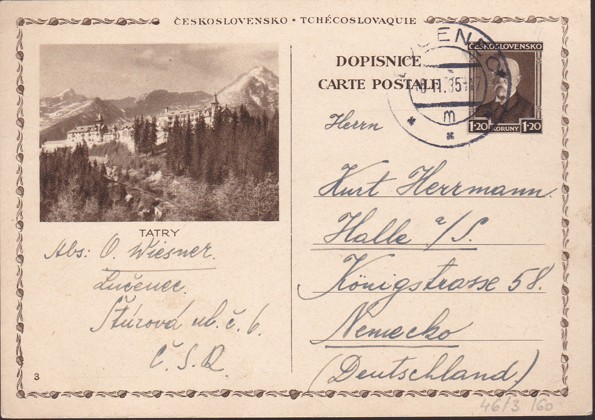 ČESKOSLOVENSKO • TCHÉCOSLOVAQUIE
DOPISNICE
CARTE POSTALE
ČESKOSLOVENSKO
1·20 KORUNY 1·20
LUČENEC
m
TATRY
Abs: O. Wiesner.
Lučenec.
Štúrová ul. č. 6.
Č. S. R.
3
Herrn
Kurt Herrmann.
Halle a/S.
Königstrasse 58.
Nemecko
(Deutschland)
46/3 /60